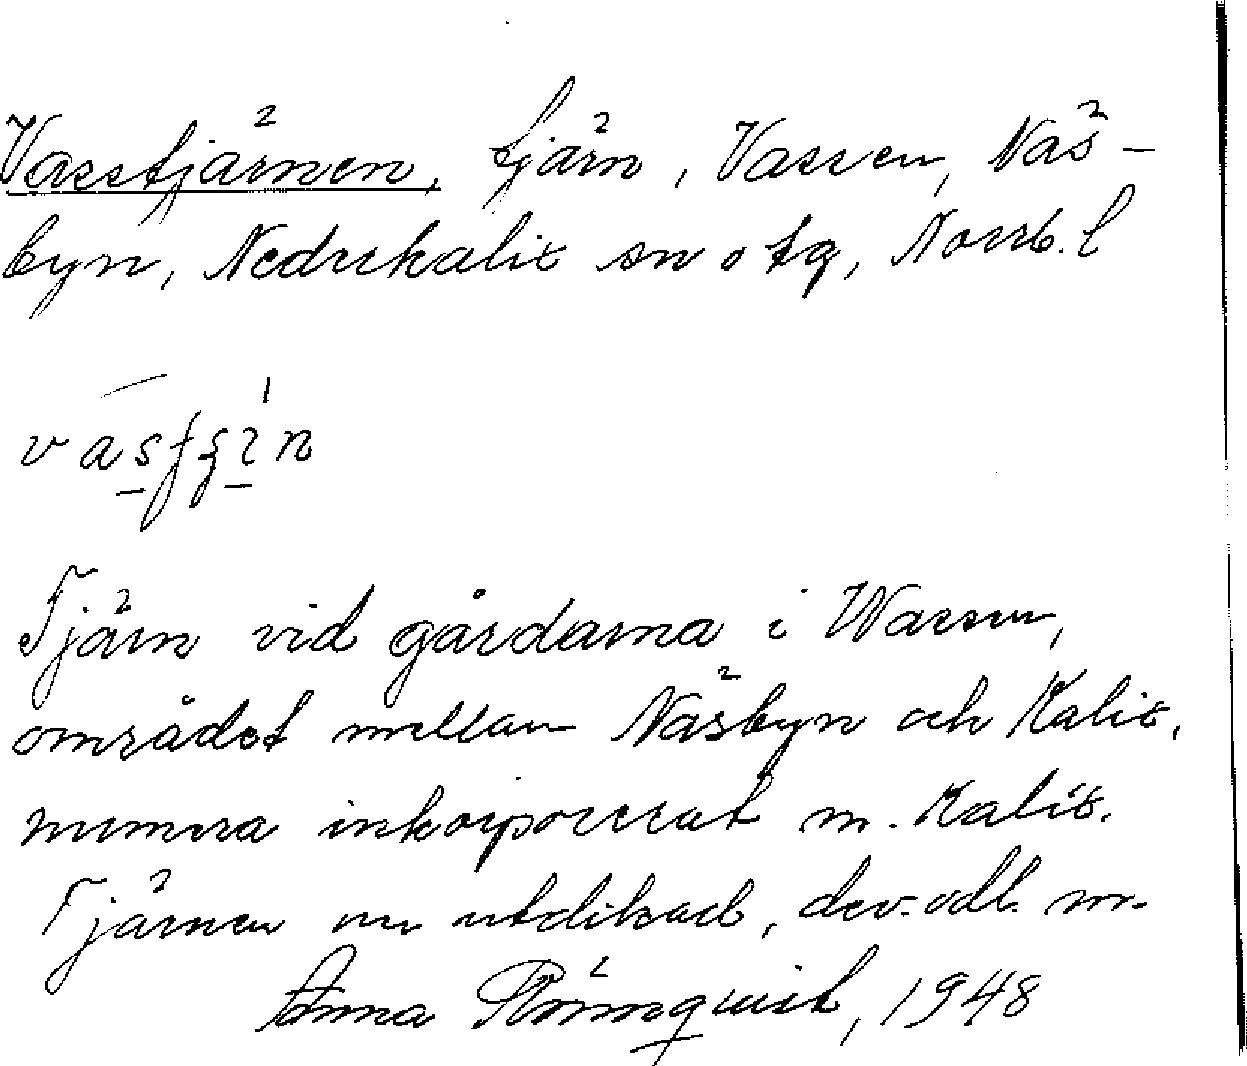 Vasstjärnen, tjärn, Vassen, Näs-
byn, Nederkalix sn o tg, Norrb. l
Tjärn vid gårdarna i Wassen,
området mellan Näsbyn och Kalix,
numera inkorporerat m. Kalix.
Tjärnen nu utdikad, dev. odl. m.
Anna 1948